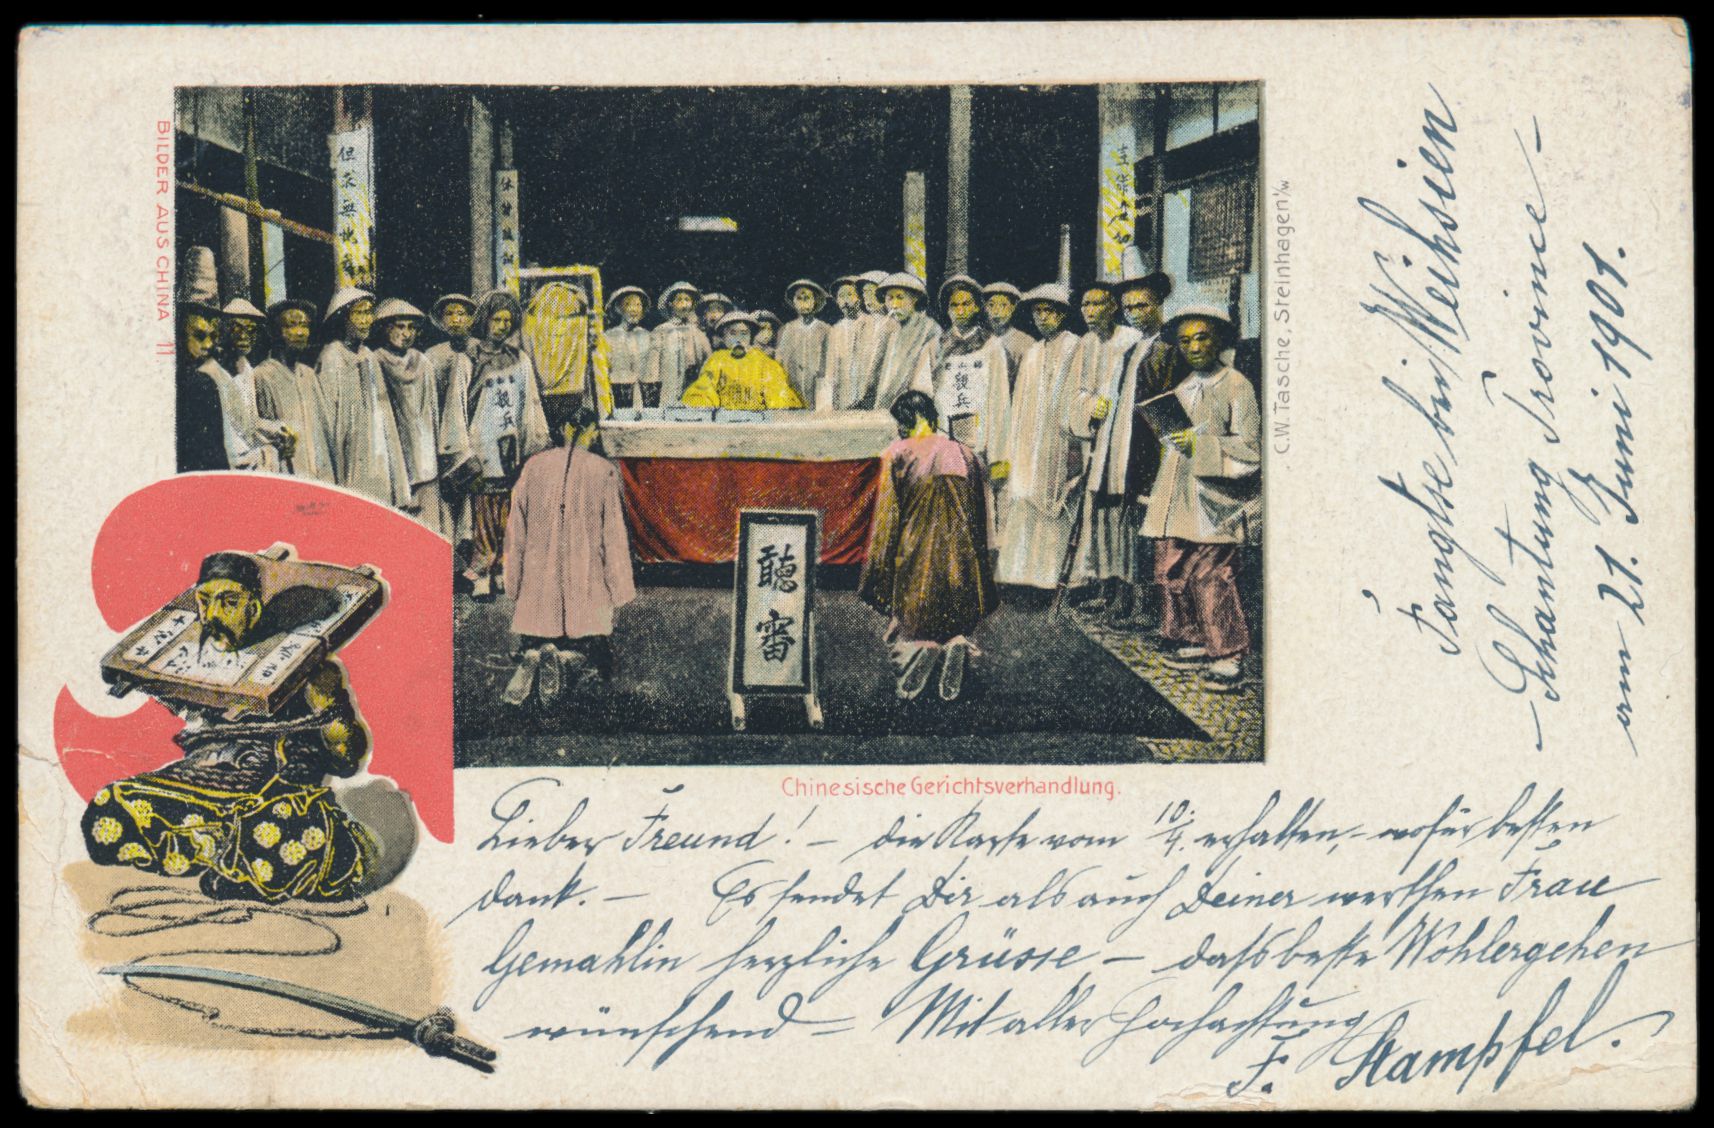 BILDER AUS CHINA 11.
C.W. Tasche, Steinhagen i/W
親兵
親兵
聽審
Chinesische Gerichtsverhandlung.
Fangtse bei Weihsien
– Schantung Province –
am 21. Juni 1901.
Lieber Freund! – die Karte vom 10./4. erhalten, – wofür besten
Dank. – Es sendet Dir als auch Deiner werthen Frau
Gemahlin herzliche Grüsse – das beste Wohlergehen
wünschend = Mit aller Hochachtung
F. Stampfel.